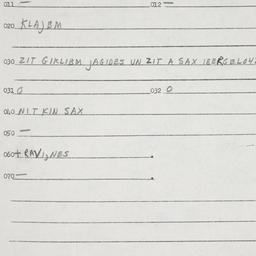 011 — 012 —
020 KLAJBM
030 ZIT GIKLIBM JAGIDBS UN ZIT A SAX
031 0 032 0
040 NIT KIN SAX
050 —
060 + RAVI,NES
070 —